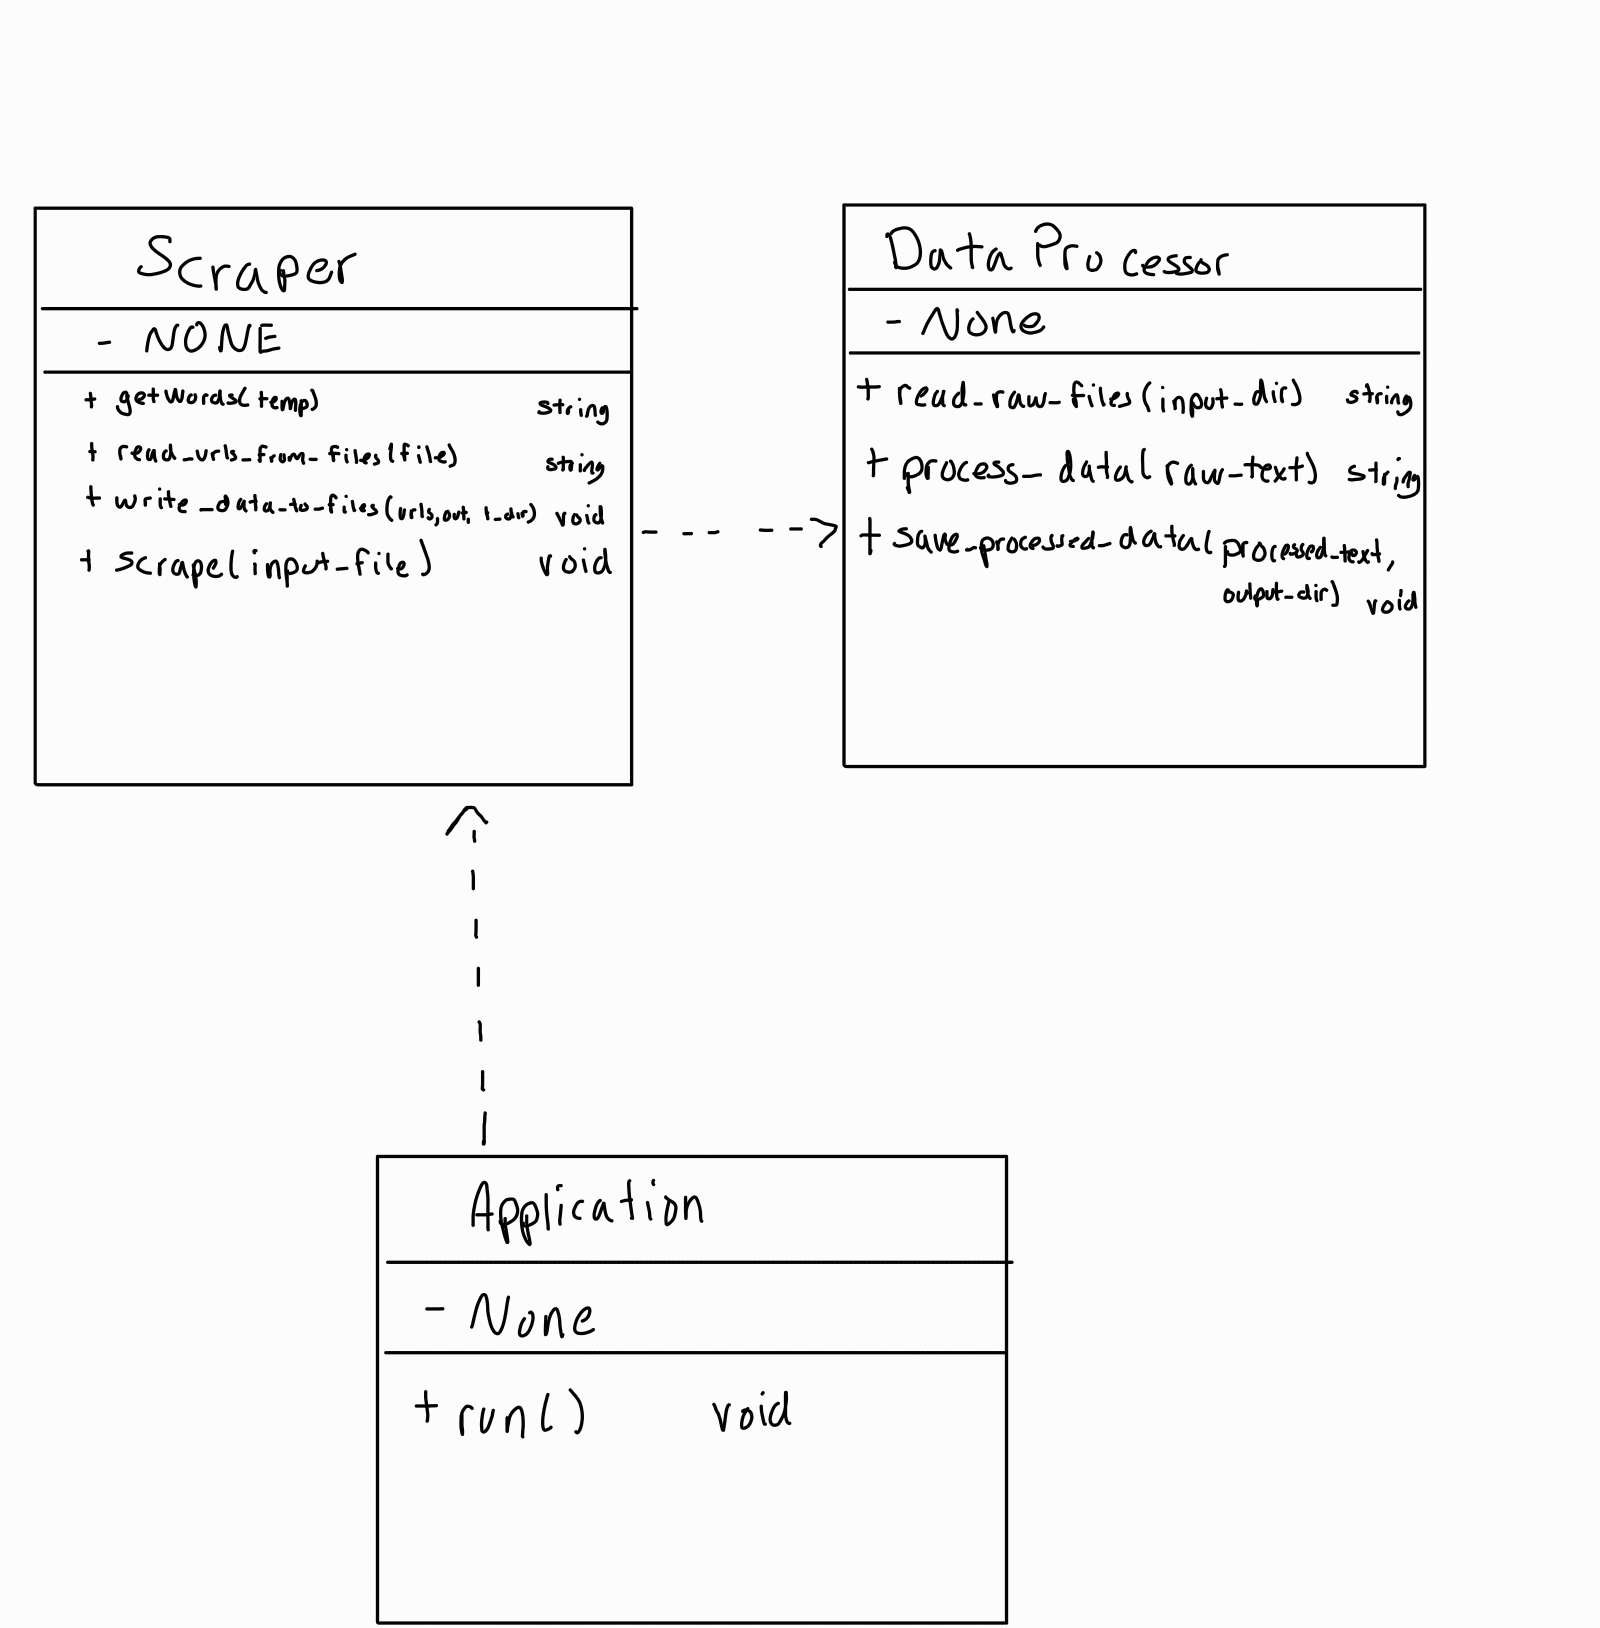 Scraper
- NONE
+ getWords(temp) string
+ read_urls_from_files(file) string
+ write_data_to_files(urls,out, t_dir) void
+ scrape(input_file) void
Data Processor
- None
+ read_raw_files(input_dir) string
+ process_data(raw_text) string
+ save_processed_data(processed_text,
output_dir) void
Application
- None
+ run() void